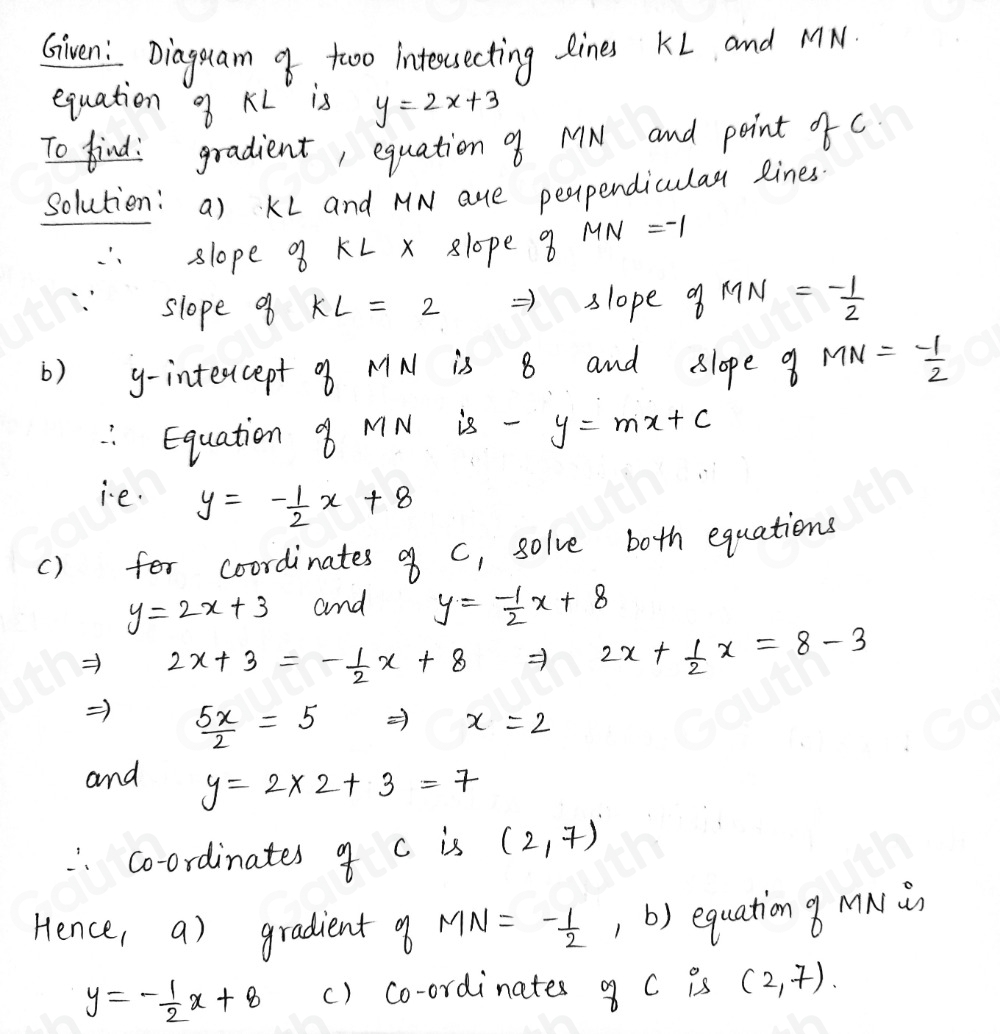 Given: Diagram of two intersecting lines KL and MN.
equation of KL is y = 2x+3
To find: gradient, equation of MN and point of C.
Solution: a) KL and MN are perpendicular lines.
∴ slope of KL x slope of MN = -1
∵ slope of KL = 2 ⇒ slope of MN = -1/2
b) y-intercept of MN is 8 and slope of MN = -1/2
∴ Equation of MN is - y = mx + c
i.e. y = -1/2 x + 8
c) for coordinates of C, solve both equations
y = 2x + 3 and y = -1/2 x + 8
⇒ 2x + 3 = -1/2 x + 8 ⇒ 2x + 1/2 x = 8 - 3
⇒ 5x/2 = 5 ⇒ x = 2
and y = 2 x 2 + 3 = 7
∴ Co-ordinates of C is (2,7)
Hence, a) gradient of MN = -1/2, b) equation of MN is
y = -1/2 x + 8 c) Co-ordinates of C is (2,7).